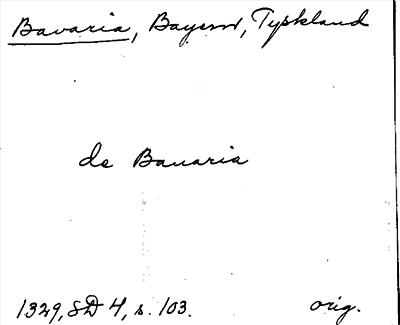 Bavaria, Bayern, Tyskland
de Bauaria
1329, SD 4, s. 103. orig.